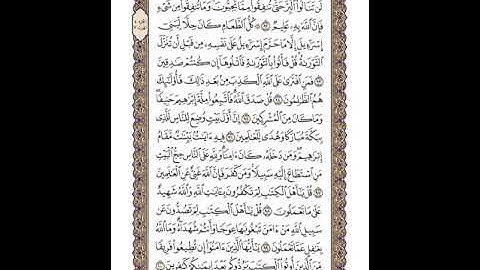 لَن تَنَالُوا۟ ٱلْبِرَّ حَتَّىٰ تُنفِقُوا۟ مِمَّا تُحِبُّونَ ۚ وَمَا تُنفِقُوا۟ مِن شَىْءٍ
فَإِنَّ ٱللَّهَ بِهِۦ عَلِيمٌ ۝٩٢ كُلُّ ٱلطَّعَامِ كَانَ حِلًّا لِّبَنِىٓ
إِسْرَٰٓءِيلَ إِلَّا مَا حَرَّمَ إِسْرَٰٓءِيلُ عَلَىٰ نَفْسِهِۦ مِن قَبْلِ أَن تُنَزَّلَ
ٱلتَّوْرَىٰةُ ۗ قُلْ فَأْتُوا۟ بِٱلتَّوْرَىٰةِ فَٱتْلُوهَآ إِن كُنتُمْ صَٰدِقِينَ
۝٩٣ فَمَنِ ٱفْتَرَىٰ عَلَى ٱللَّهِ ٱلْكَذِبَ مِنۢ بَعْدِ ذَٰلِكَ فَأُو۟لَٰٓئِكَ
هُمُ ٱلظَّٰلِمُونَ ۝٩٤ قُلْ صَدَقَ ٱللَّهُ ۗ فَٱتَّبِعُوا۟ مِلَّةَ إِبْرَٰهِيمَ حَنِيفًا
وَمَا كَانَ مِنَ ٱلْمُشْرِكِينَ ۝٩٥ إِنَّ أَوَّلَ بَيْتٍ وُضِعَ لِلنَّاسِ لَلَّذِى
بِبَكَّةَ مُبَارَكًا وَهُدًى لِّلْعَٰلَمِينَ ۝٩٦ فِيهِ ءَايَٰتٌۢ بَيِّنَٰتٌ مَّقَامُ
إِبْرَٰهِيمَ ۖ وَمَن دَخَلَهُۥ كَانَ ءَامِنًا ۗ وَلِلَّهِ عَلَى ٱلنَّاسِ حِجُّ ٱلْبَيْتِ
مَنِ ٱسْتَطَاعَ إِلَيْهِ سَبِيلًا ۚ وَمَن كَفَرَ فَإِنَّ ٱللَّهَ غَنِىٌّ عَنِ ٱلْعَٰلَمِينَ
۝٩٧ قُلْ يَٰٓأَهْلَ ٱلْكِتَٰبِ لِمَ تَكْفُرُونَ بِـَٔايَٰتِ ٱللَّهِ وَٱللَّهُ شَهِيدٌ
عَلَىٰ مَا تَعْمَلُونَ ۝٩٨ قُلْ يَٰٓأَهْلَ ٱلْكِتَٰبِ لِمَ تَصُدُّونَ عَن
سَبِيلِ ٱللَّهِ مَنْ ءَامَنَ تَبْغُونَهَا عِوَجًا وَأَنتُمْ شُهَدَآءُ ۗ وَمَا ٱللَّهُ
بِغَٰفِلٍ عَمَّا تَعْمَلُونَ ۝٩٩ يَٰٓأَيُّهَا ٱلَّذِينَ ءَامَنُوٓا۟ إِن تُطِيعُوا۟ فَرِيقًا
مِّنَ ٱلَّذِينَ أُوتُوا۟ ٱلْكِتَٰبَ يَرُدُّوكُم بَعْدَ إِيمَٰنِكُمْ كَٰفِرِينَ ۝١٠٠